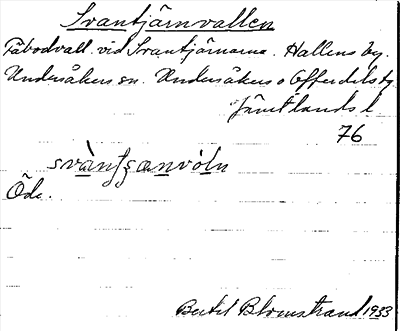 Svantjärnvallen
Fäbodvall vid Svantjärnarna. Hallens by.
Undersåkers sn. Undersåkers o Offerdals tg
Jämtlands l
76
Öde.
Bertil Blomstrand 1933